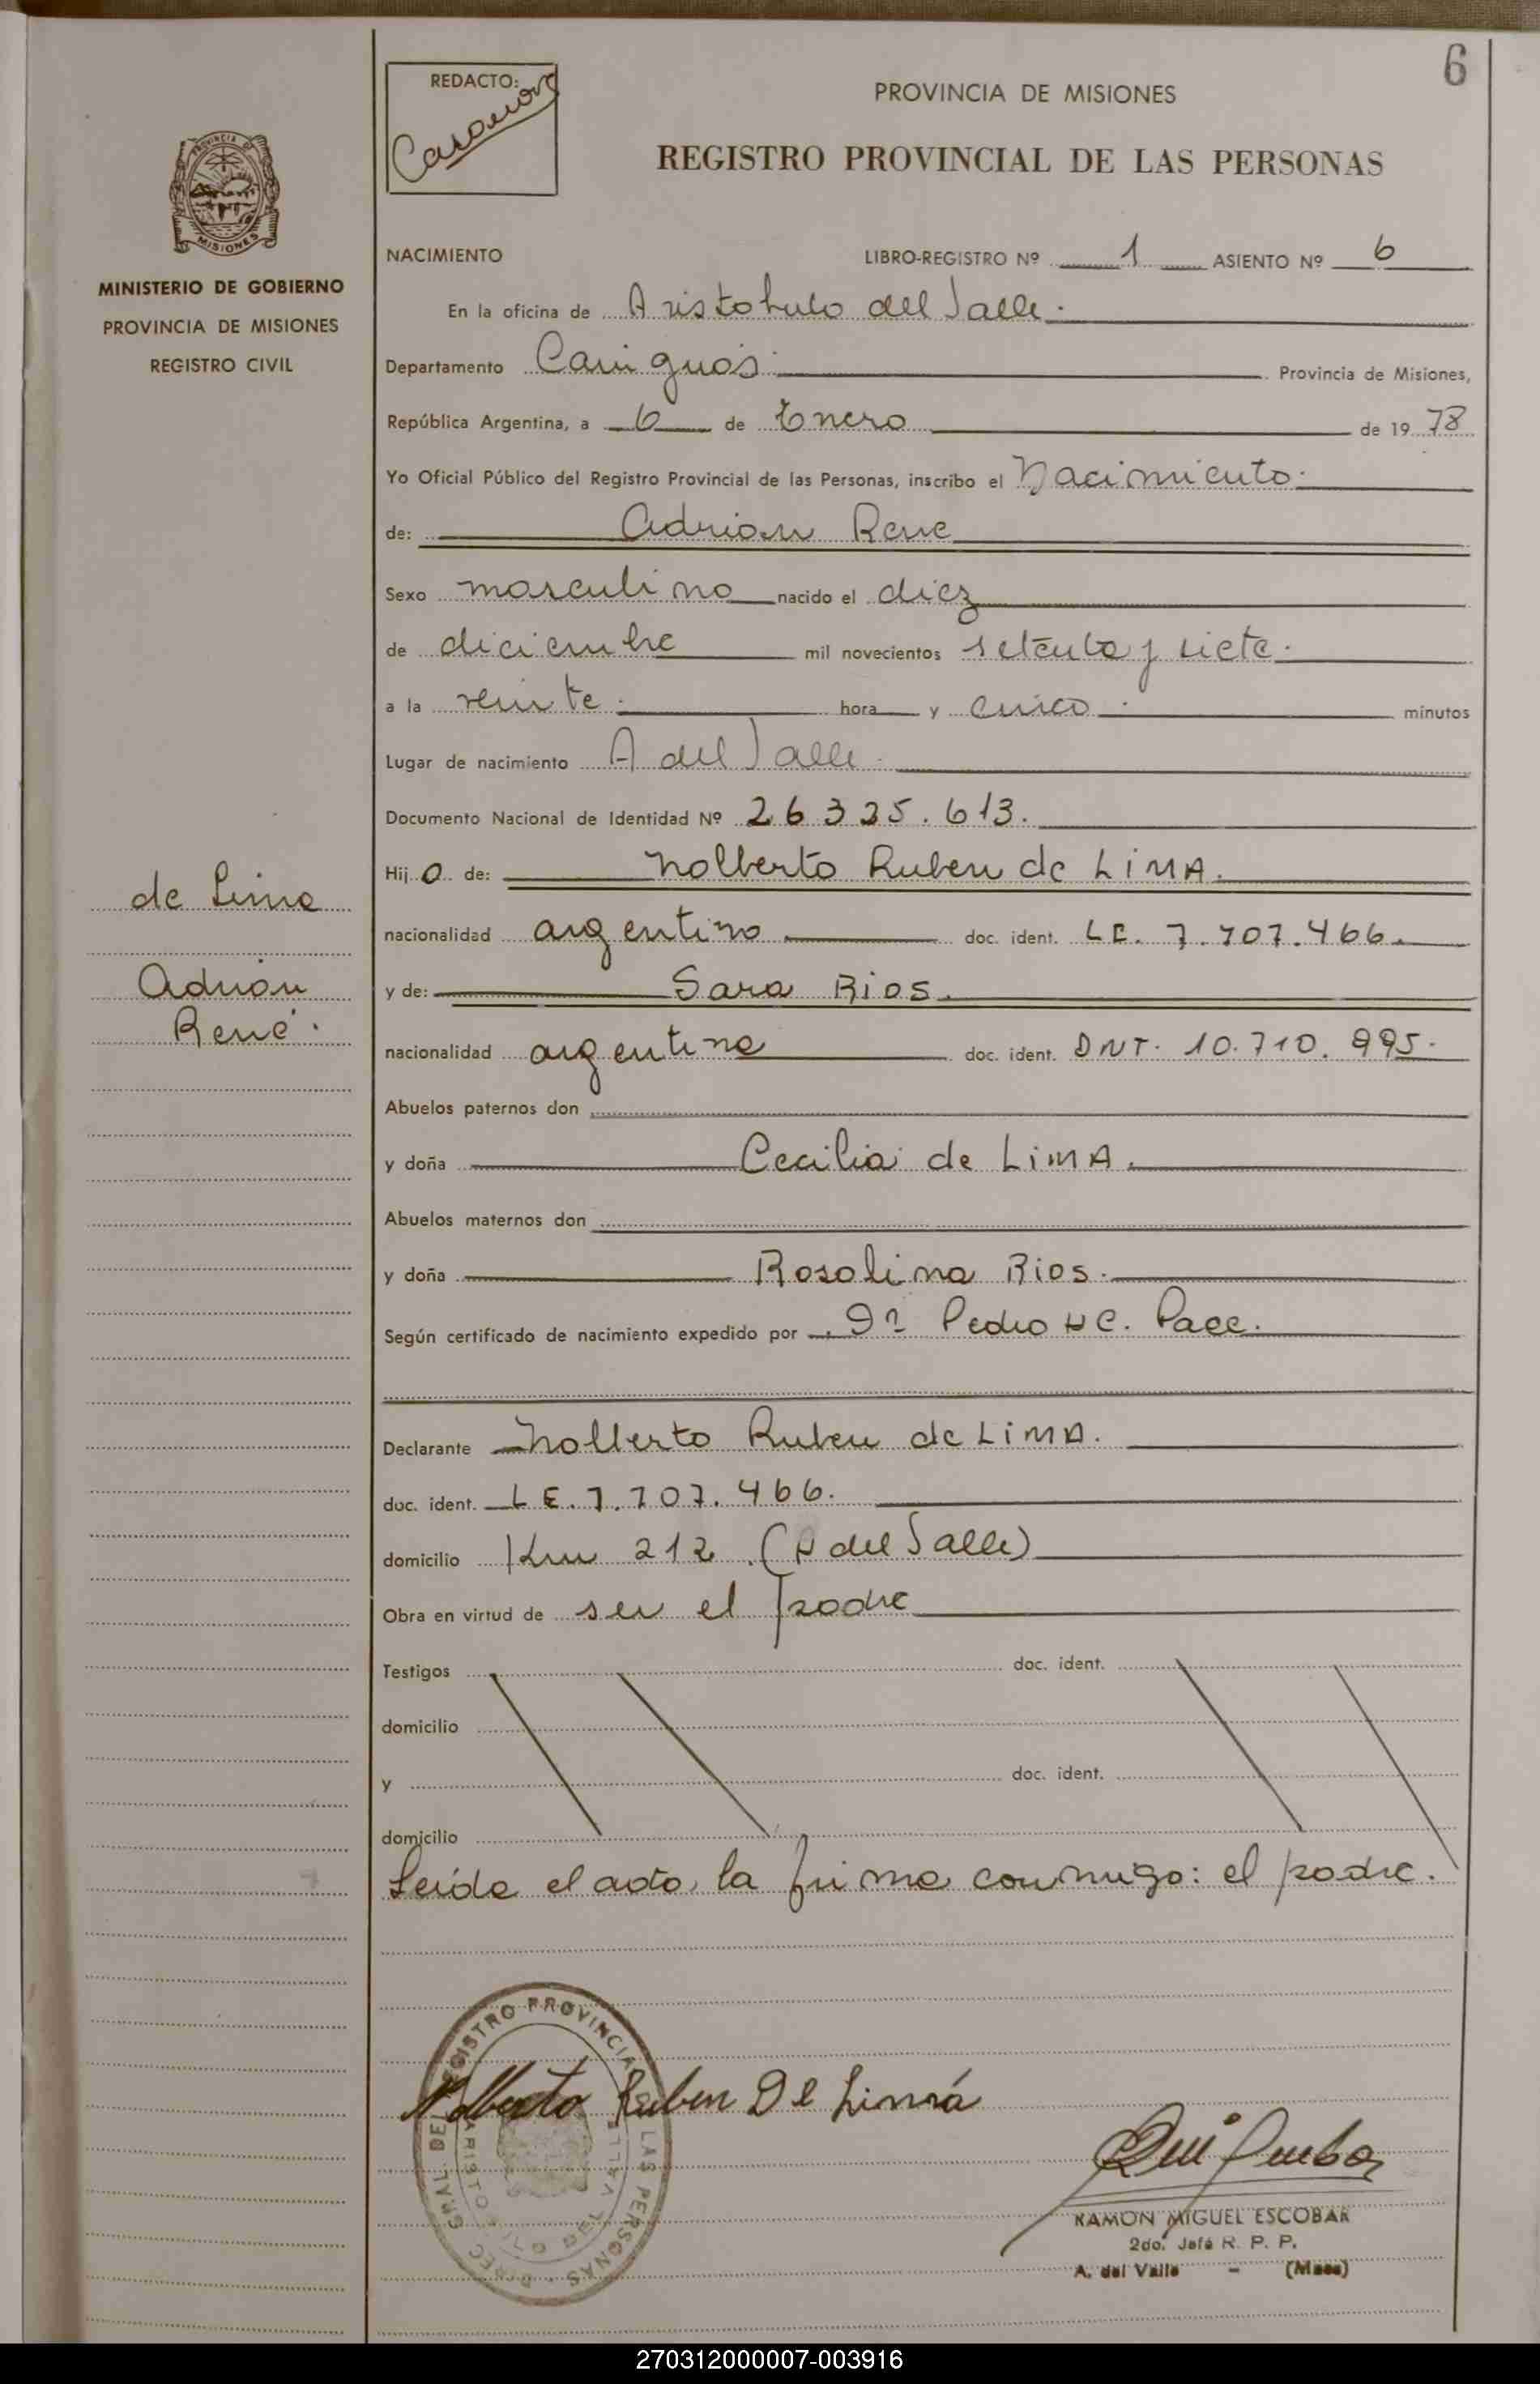 6
REDACTO:
Casanova
PROVINCIA DE MISIONES
REGISTRO PROVINCIAL DE LAS PERSONAS
PROVINCIA D
MISIONES
MINISTERIO DE GOBIERNO
PROVINCIA DE MISIONES
REGISTRO CIVIL
NACIMIENTO LIBRO-REGISTRO Nº 1 ASIENTO Nº 6
En la oficina de Aristobulo del Valle.
Departamento Cainguás Provincia de Misiones,
República Argentina, a 6 de Enero de 1978
Yo Oficial Público del Registro Provincial de las Personas, inscribo el Nacimiento.
de: Adrian Rene
Sexo masculino nacido el diez
de diciembre mil novecientos setenta y siete.
a la veinte. hora y cinco. minutos
Lugar de nacimiento A del Valle.
Documento Nacional de Identidad Nº 26 325.613.
Hijo de: Nolberto Ruben de LiMA.
nacionalidad argentino doc. ident. LE. 7.707.466.
y de: Sara Rios.
nacionalidad argentina doc. ident. DNI. 10.710.995.
Abuelos paternos don
y doña Cecilia de LiMA.
Abuelos maternos don
y doña Rosalina Rios.
Según certificado de nacimiento expedido por Pedro C. Pace.
Declarante Nolberto Ruben de LiMA.
doc. ident. LE. 7.707.466.
domicilio Km 212 (A del Valle)
Obra en virtud de ser el padre
Testigos doc. ident.
domicilio
y doc. ident.
domicilio
Leida el acta, la firma conmigo: el padre.
de Lima
Adrián
René.
DIREC. GRAL. DEL REGISTRO PROVINCIAL DE LAS PERSONAS
ARISTOBULO DEL VALLE
Nolberto Ruben De Lima
RAMON MIGUEL ESCOBAR
2do. Jefe R. P. P.
A. del Valle - (Mnes)
270312000007-003916